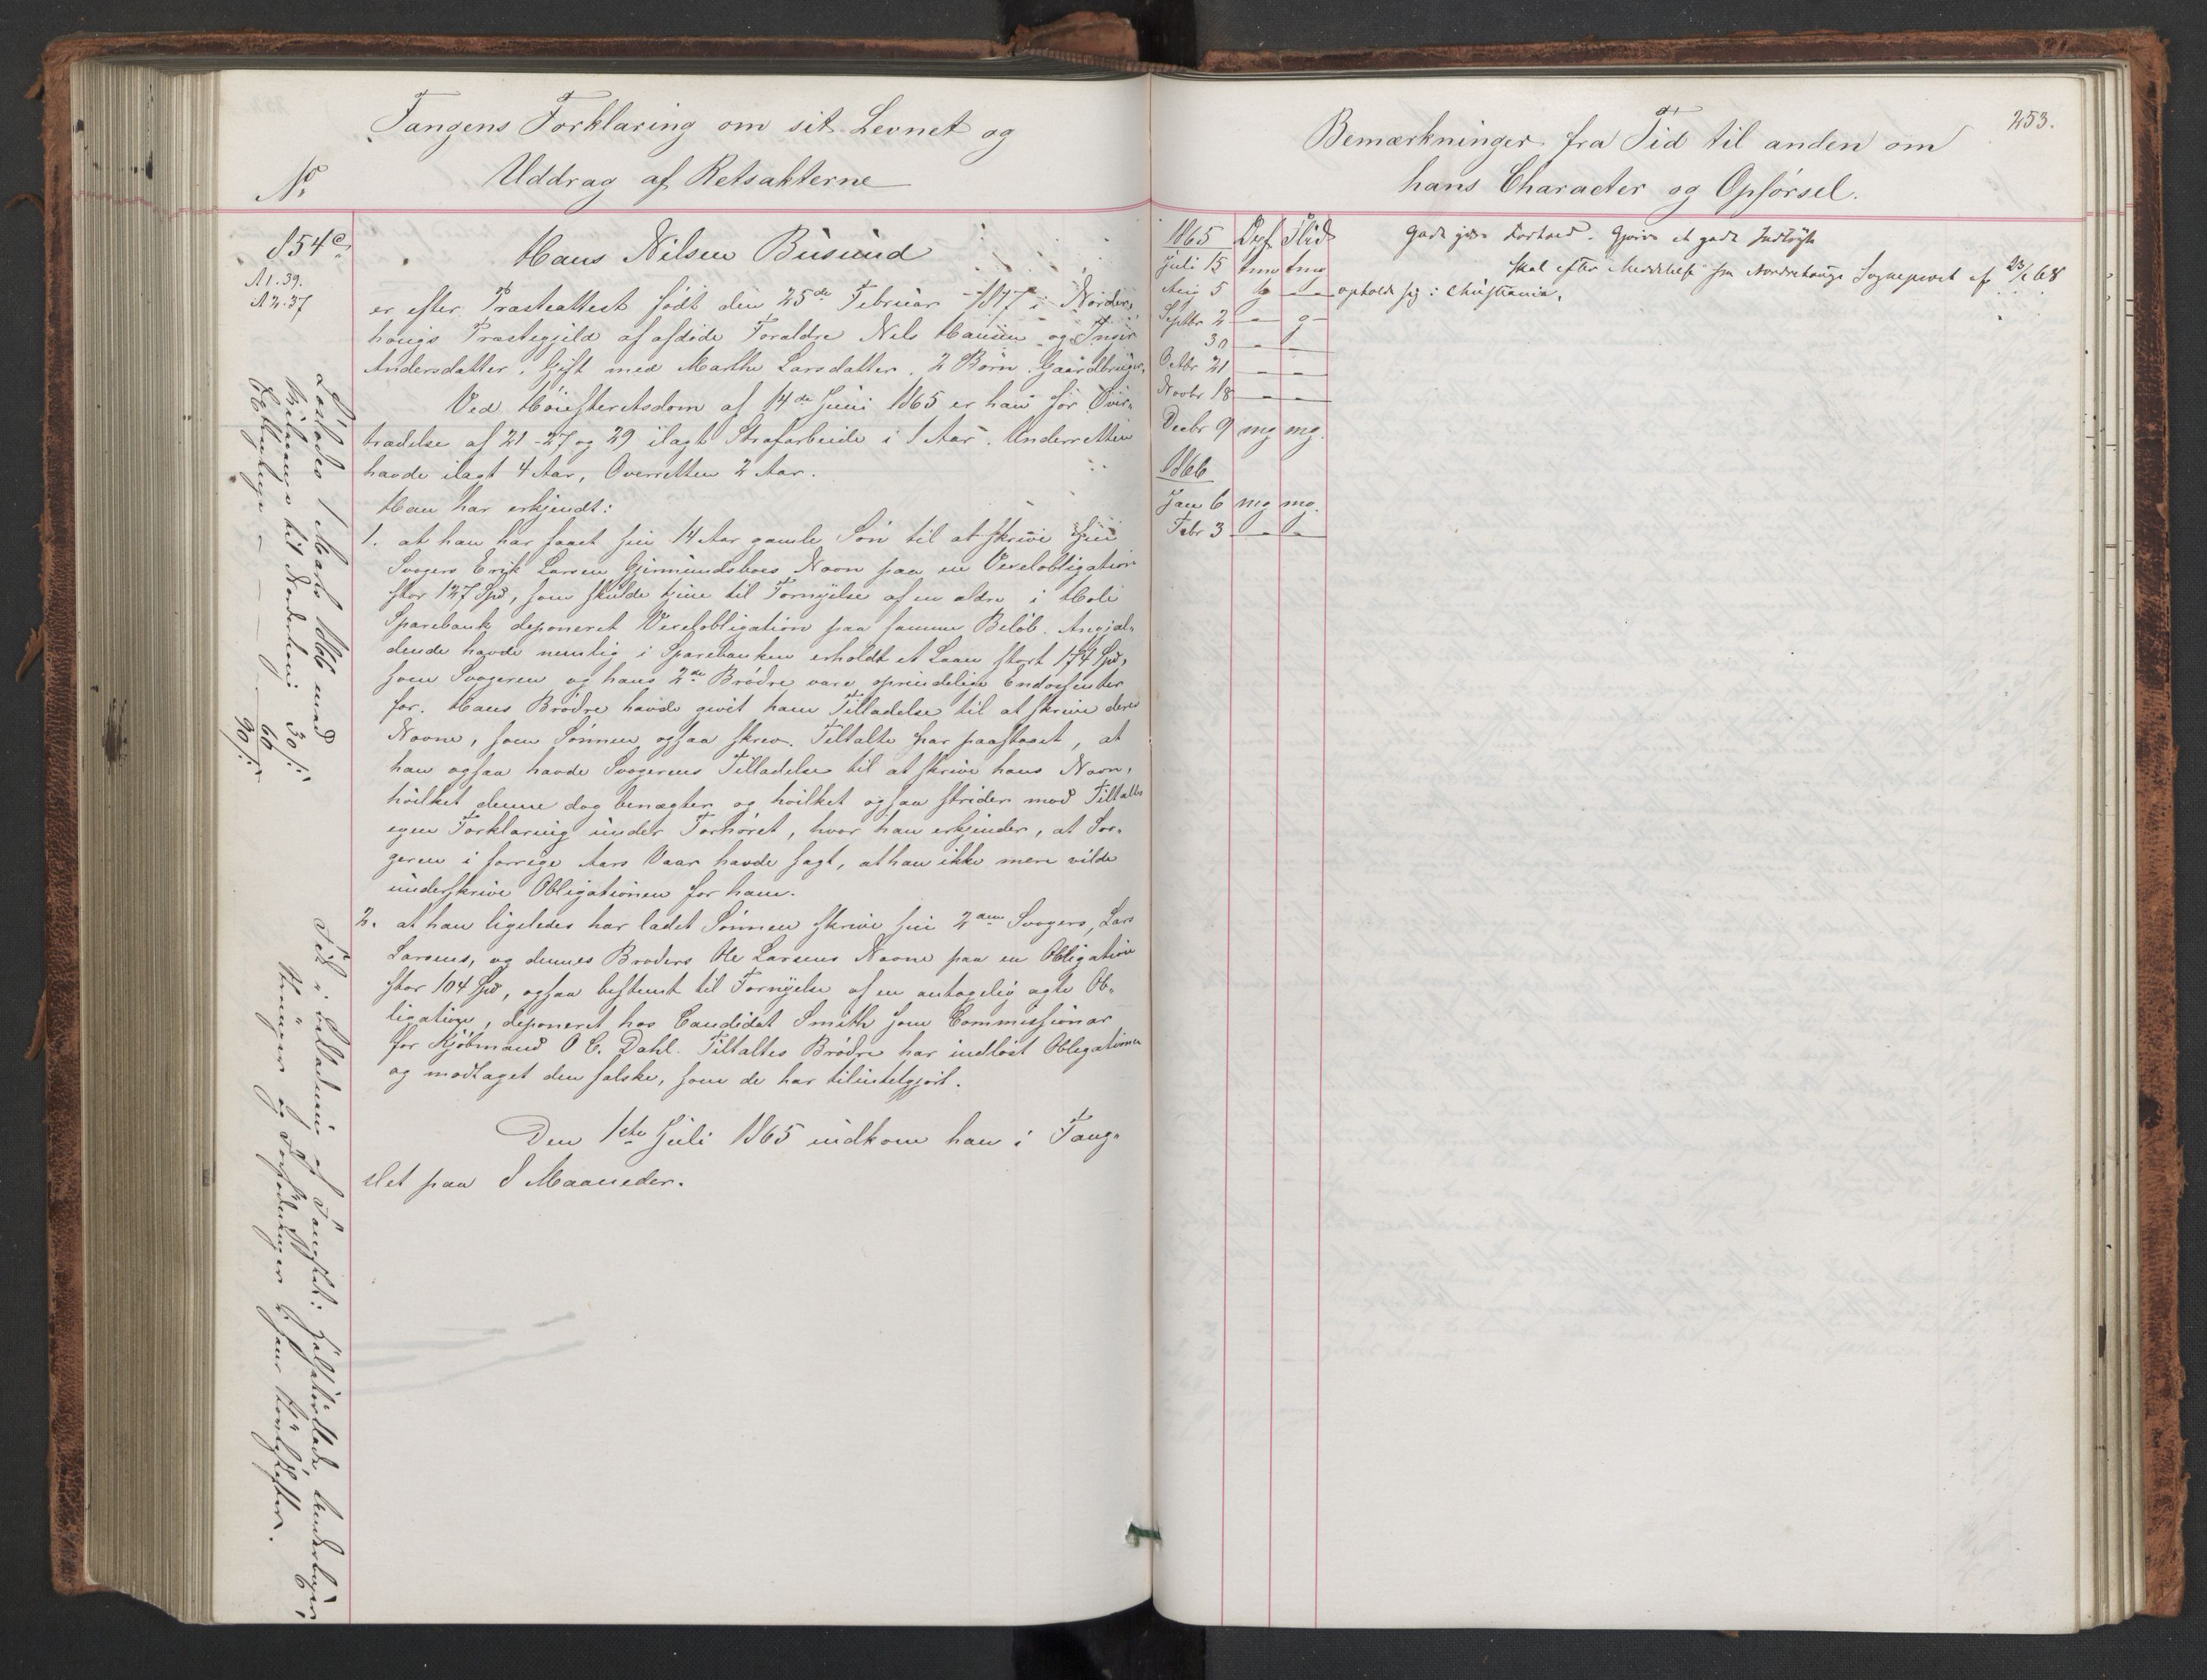 Fangens Forklaring om sit Levnet og
Uddrag af Retsakterne
No
854 c.
A 1. 39.
A 2. 37
Hans Nilsen Busund
er efter Præsteattest født den 25de Februar 1817 i Norder-
hougs Præstegjeld af afdøde Forældre Nils Hansen og Inger
Andersdatter. Gift med Marthe Larsdatter. 2 Børn. Gaardbruger.
Ved Høiesteretsdom af 14de Juni 1865 er han for Over-
trædelse af 21-27 og 29 ilagt Strafarbeide i 1 Aar. Underretten
havde ilagt 4 Aar, Overretten 2 Aar.
Han har erkjendt:
1. at han har faaet sin 14 Aar gamle Søn til at skrive sin
Svogers Erik Larsen Gjermundsboes Navn paa en Vexelobligation
stor 127 Spd, som skulde tjene til Fornyelse af en ældre i Hole
Sparebank deponeret Vexelobligation paa samme Beløb. Angjæl-
dende havde nemlig i Sparebanken erholdt et Laan stort 174 Spd,
som Svogeren og hans 2de Brødre vare oprindelige Endossenter
for. Hans Brødre havde givet ham Tilladelse til at skrive deres
Navne, som Sønnen ogsaa skrev. Tiltalte har paastaaet, at
han ogsaa havde Svogerens Tilladelse til at skrive hans Navn,
hvilket denne dog benægter og hvilket ogsaa strider mod Tiltaltes
egen Forklaring under Forhøret, hvor han erkjender, at Svo-
geren i forrige Aars Vaar havde sagt, at han ikke mere vilde
underskrive Obligationen for ham.
2. at han ligeledes har ladet Sønnen skrive sin 2den Svogers, Lars
Larsens, og dennes Broders Ole Larsens Navne paa en Obligation
stor 104 Spd, ogsaa bestemt til Fornyelse af en antagelig ægte Ob-
ligation, deponeret hos Candidat Smith som Commissionær
for Kjøbmand O C. Dahl. Tiltaltes Brødre har indløst Obligationen
og modtaget den falske, som de har tilintetgjort.
Den 1ste Juli 1865 indkom han i Fæng-
slet paa 8 Maaneder.
Løslodes 1 Marts 1866 med
Reisepenge til Norderhoug 30 ſ:
60
90 ſ:
Fik i Udlaan af Fængslet:
Bemærkninger fra Tid til anden om
hans Character og Opførsel.
253.
1865 Opf. Flid
Juli 15 tmg tmg
Aug 5 g —
Septbr 2 — g
30 — —
Octbr 21 — —
Novbr 18 — —
Decbr 9 mg mg.
1866
Jan 6 mg mg.
Febr 3 — —
godt Forhold. Gjøre et godt Indtryk
Skal efter Meddelelse fra Nordrehougs Sognepræst af 23/1 68
opholde sig i Christiania.